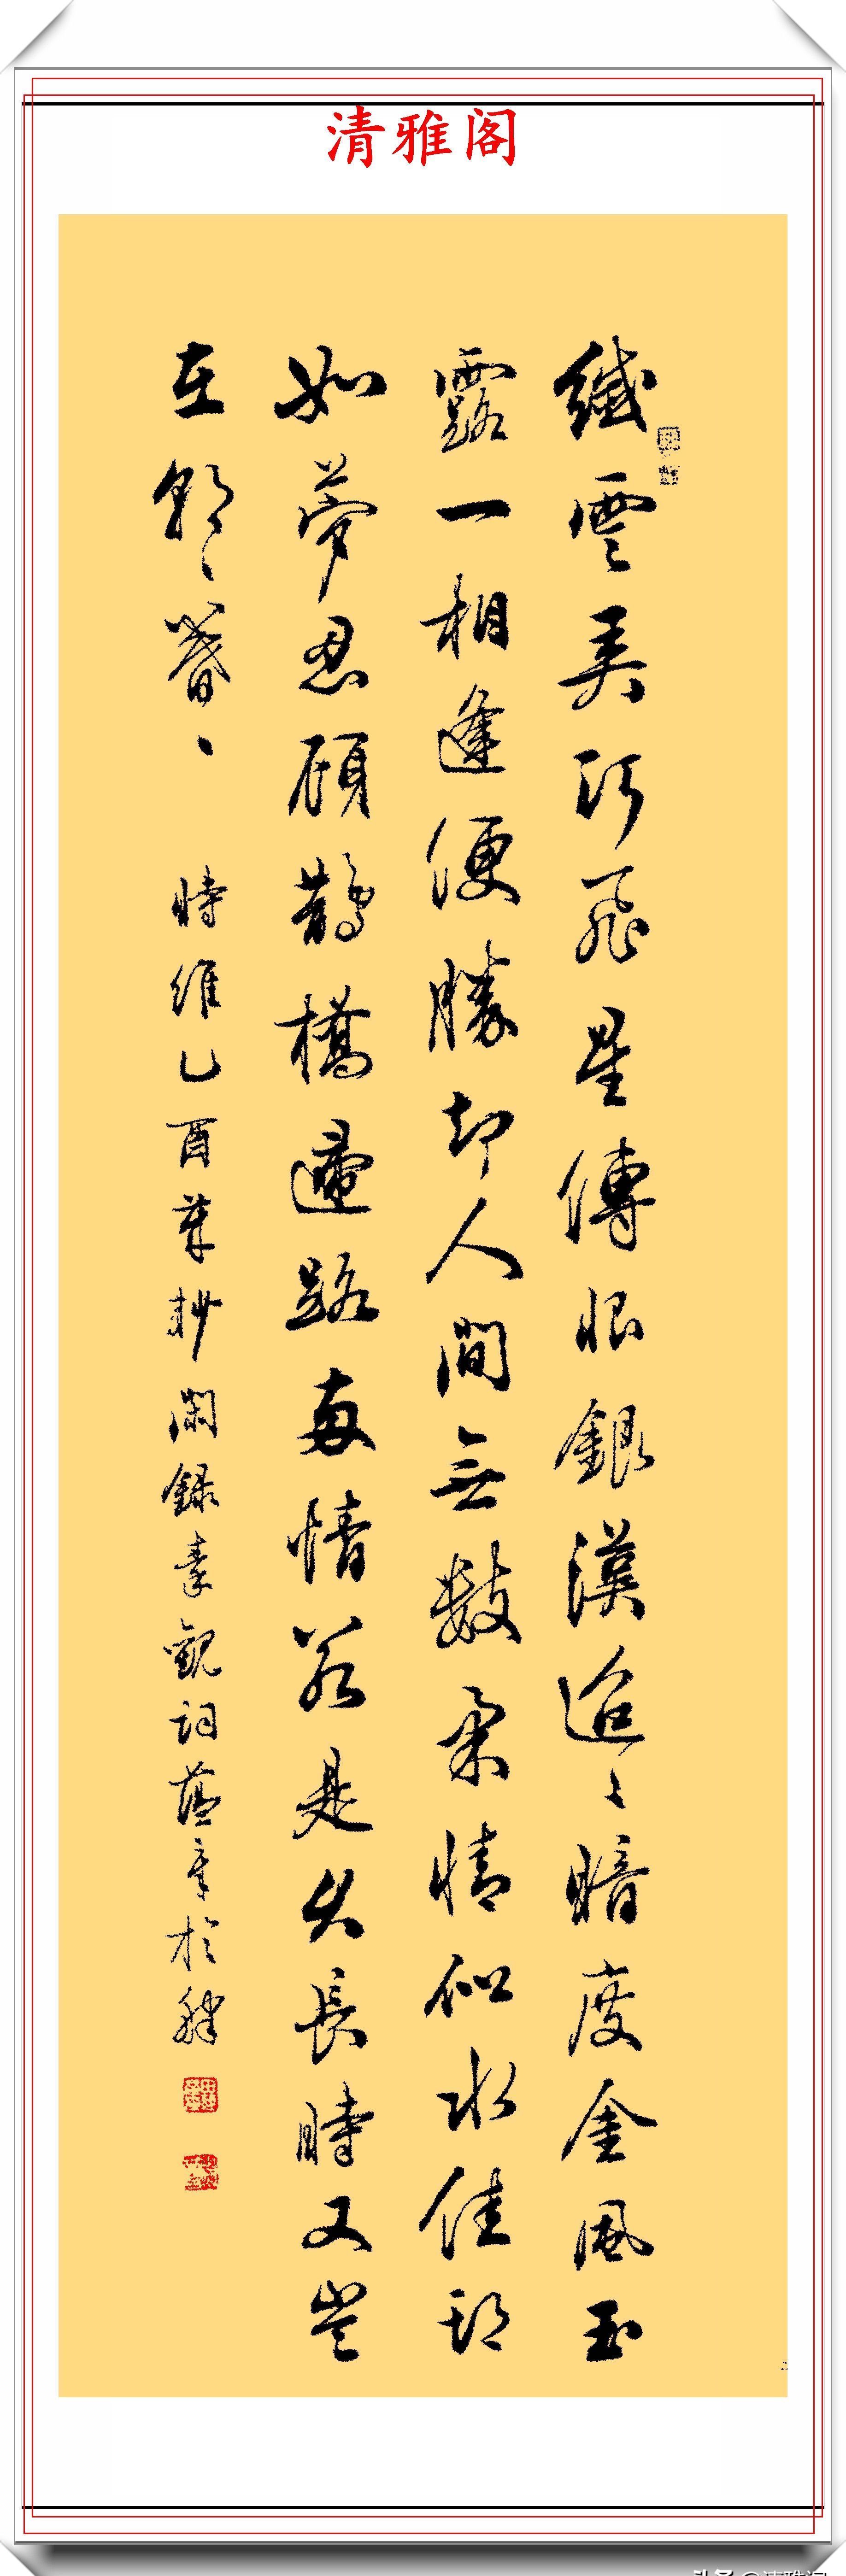 清雅阁
纖雲弄巧飛星傳恨銀漢迢〻暗度金風玉
露一相逢便勝却人間無數柔情似水佳期
如夢忍顧鵲橋歸路兩情若是久長時又豈
在朝〻暮〻 時維乙酉抄閑錄秦觀詞於